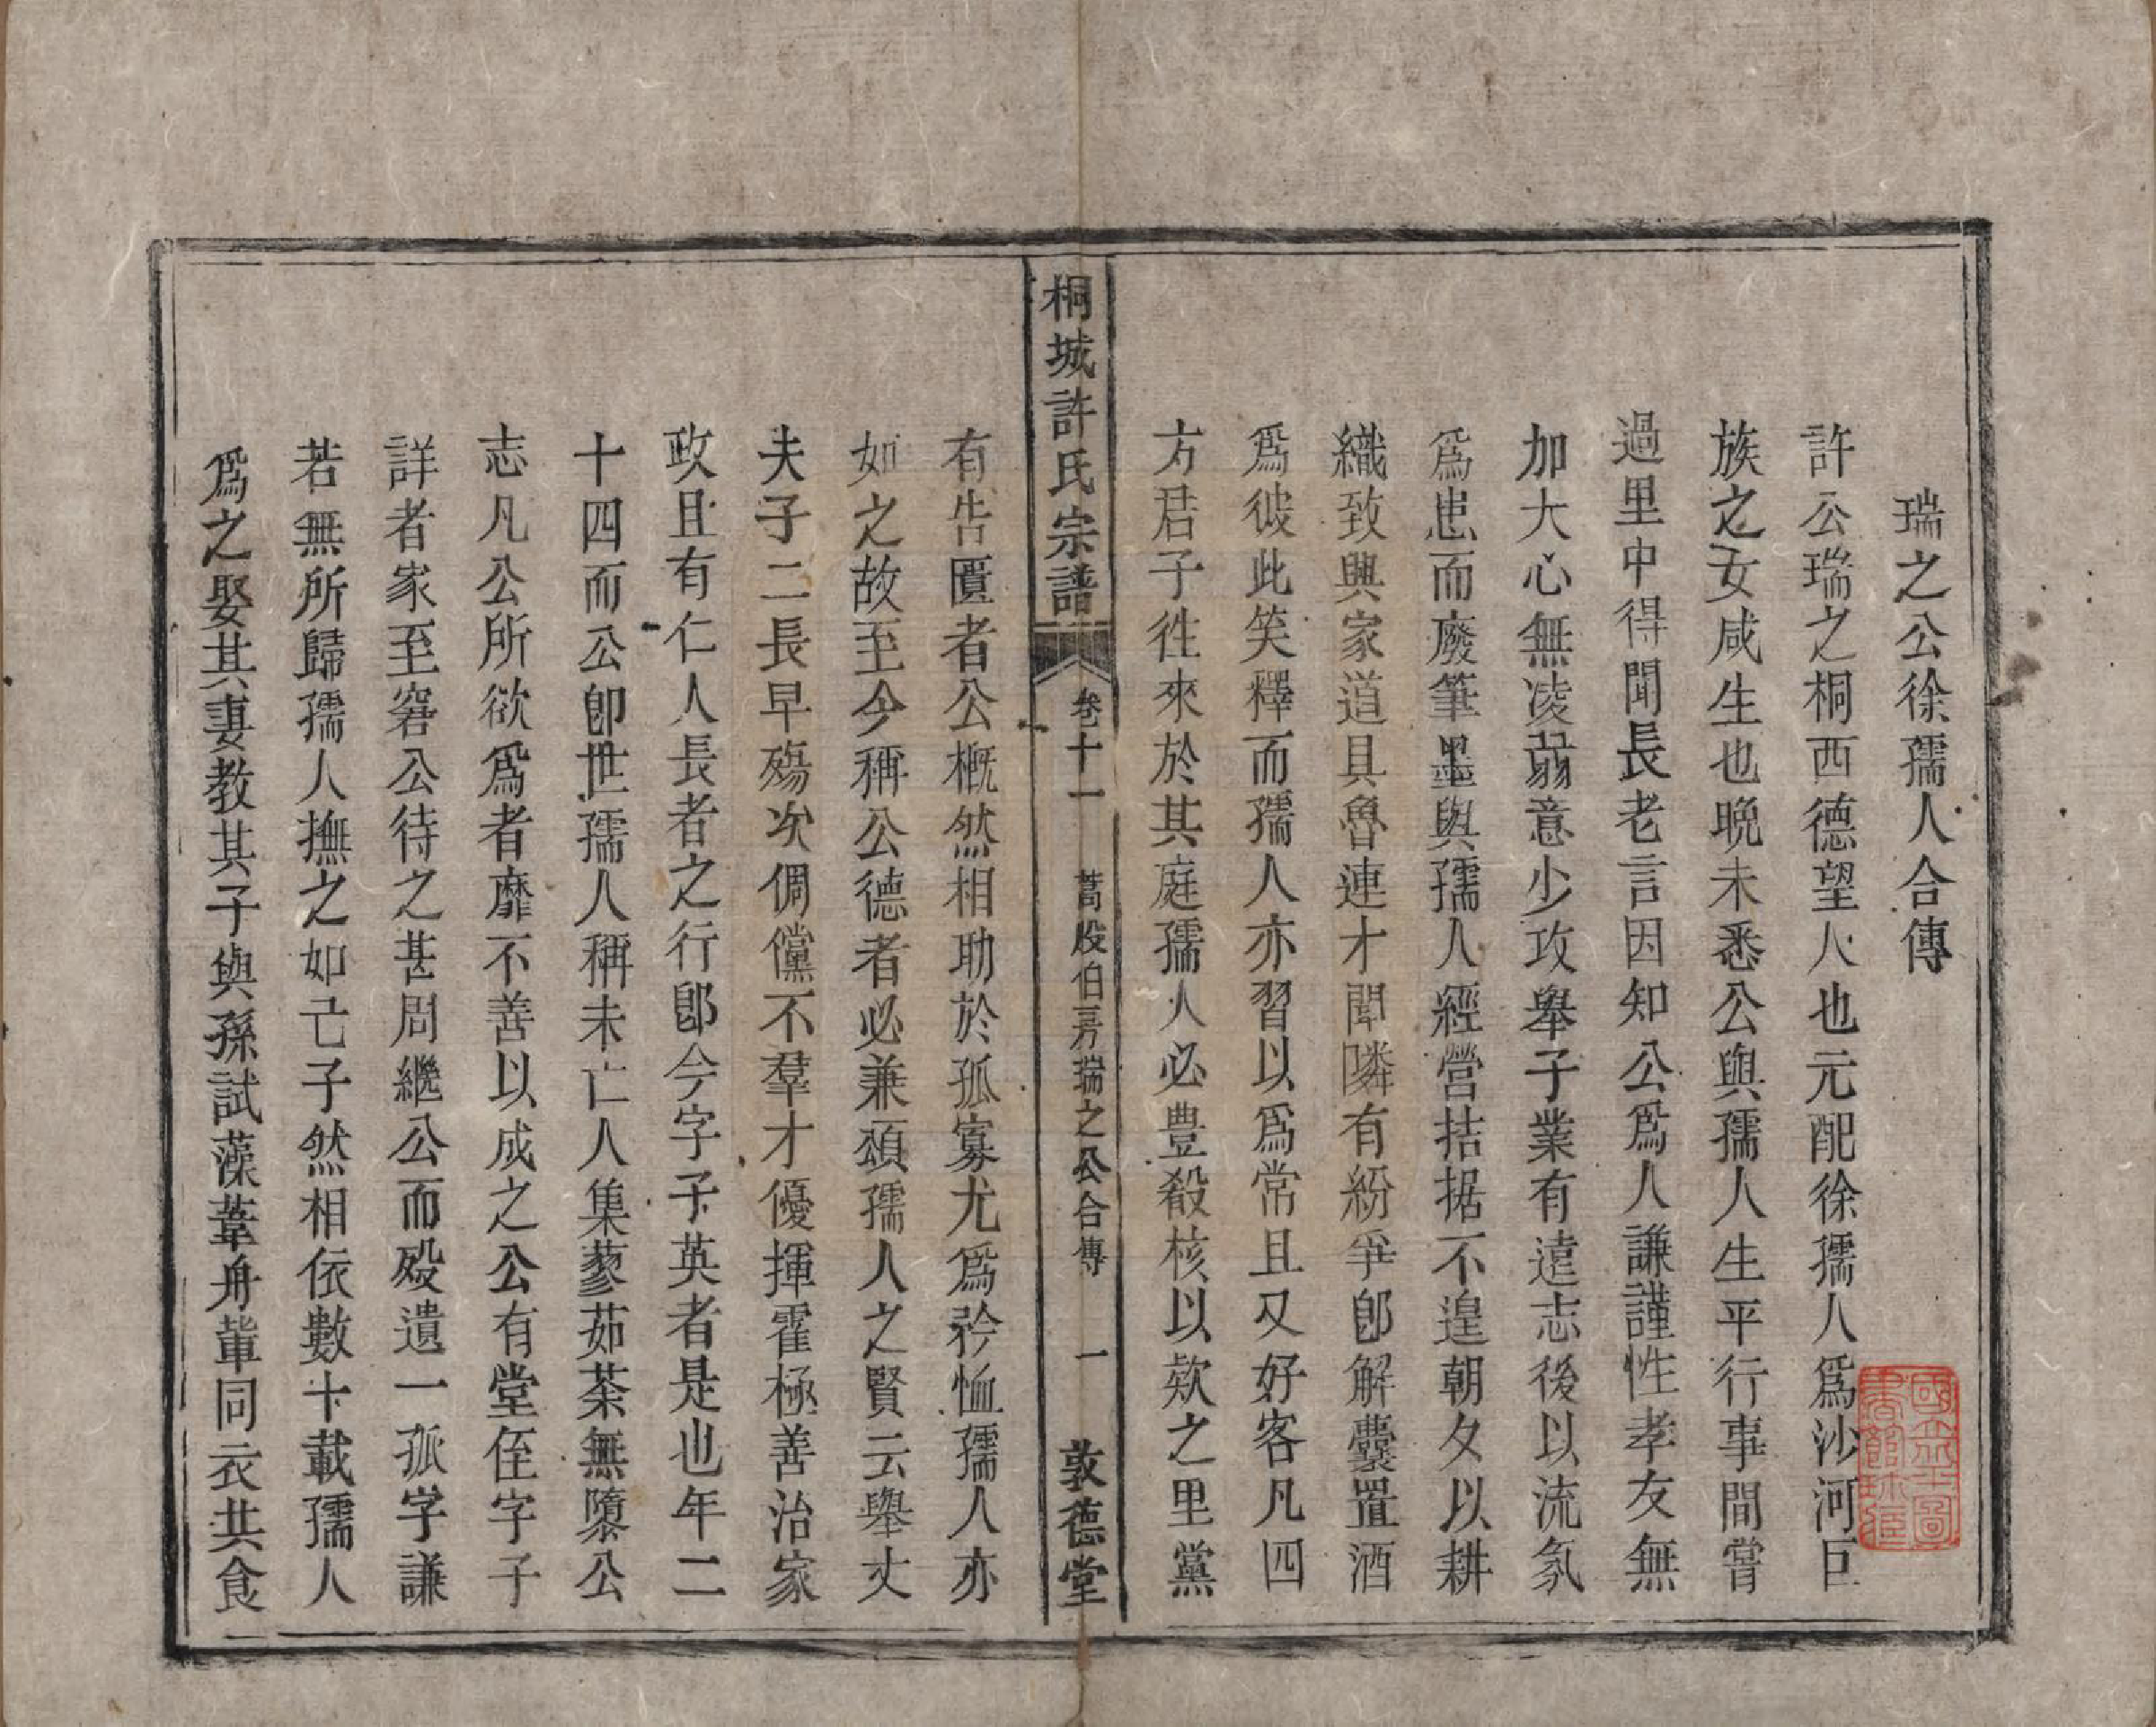 瑞之公徐孺人合傳
許公瑞之桐西德望人也元配徐孺人爲沙河巨
族之女咸生也晩未悉公與孺人生平行事間嘗
過里中得聞長老言因知公爲人謙謹性孝友無
加大心無凌弱意少攻舉子業有遠志後以流氛
爲患而廢筆墨與孺人經營拮据不遑朝夕以耕
織致興家道具魯連才聞隣有紛爭卽解囊置酒
爲彼此笑釋而孺人亦習以爲常且又好客凡四
方君子徃來於其庭孺人必豊殽核以欵之里黨
桐城許氏宗譜
卷十一
瑞之公合傳
一
敦德堂
有告匱者公槪然相助於孤寡尤爲矜恤孺人亦
如之故至今稱公德者必兼頌孺人之賢云舉丈
夫子二長早殤次倜儻不羣才優揮霍極善治家
政且有仁人長者之行卽今字子英者是也年二
十四而公卽世孺人稱未亡人集蓼茹荼無隳公
志凡公所欲爲者靡不善以成之公有堂侄字子
詳者家至窘公待之甚周繼公而殁遺一孤字謙
若無所歸孺人撫之如己子然相依數十載孺人
爲之娶其妻教其子與孫試藻葦舟軰同衣共食
國立北平圖
書館珍藏